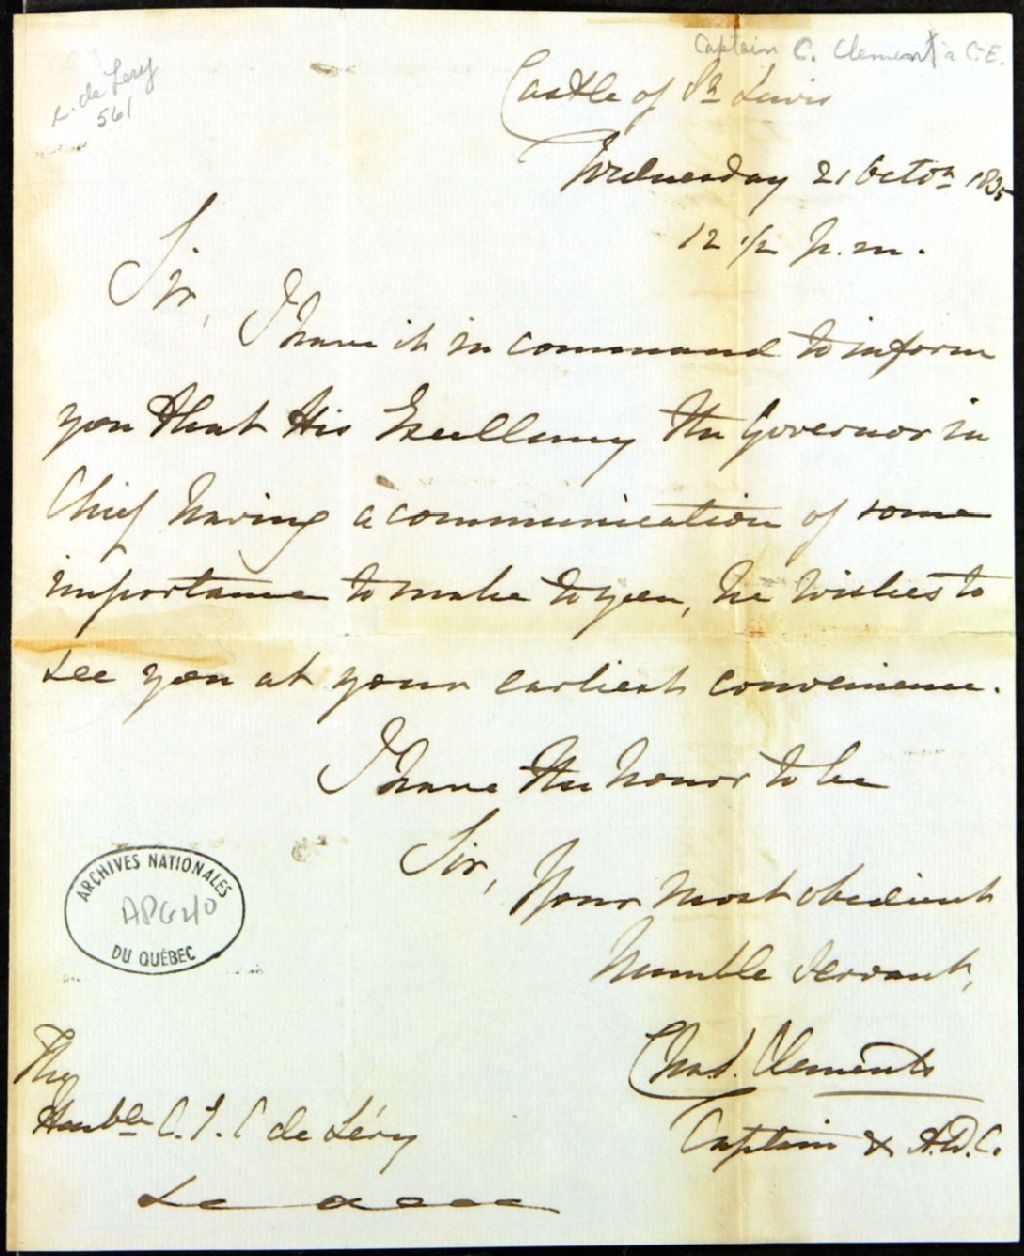 Captain C. Clement à C.E.
R. de Léry
561
Castle of St Lewis
Wednesday 21 Octor 1835
12 1/2 p.m.
Sir,
I have it in command to inform
you that His Excellency the Governor in
Chief having a communication of some
importance to make to you, he wishes to
see you at your earliest convenience.
I have the honor to be
Sir,
Your most obedient
humble servant,
Chas. Clements
Captain & A.D.C.
ARCHIVES NATIONALES
APG240
DU QUÉBEC
The
Honble C. J. C de Léry